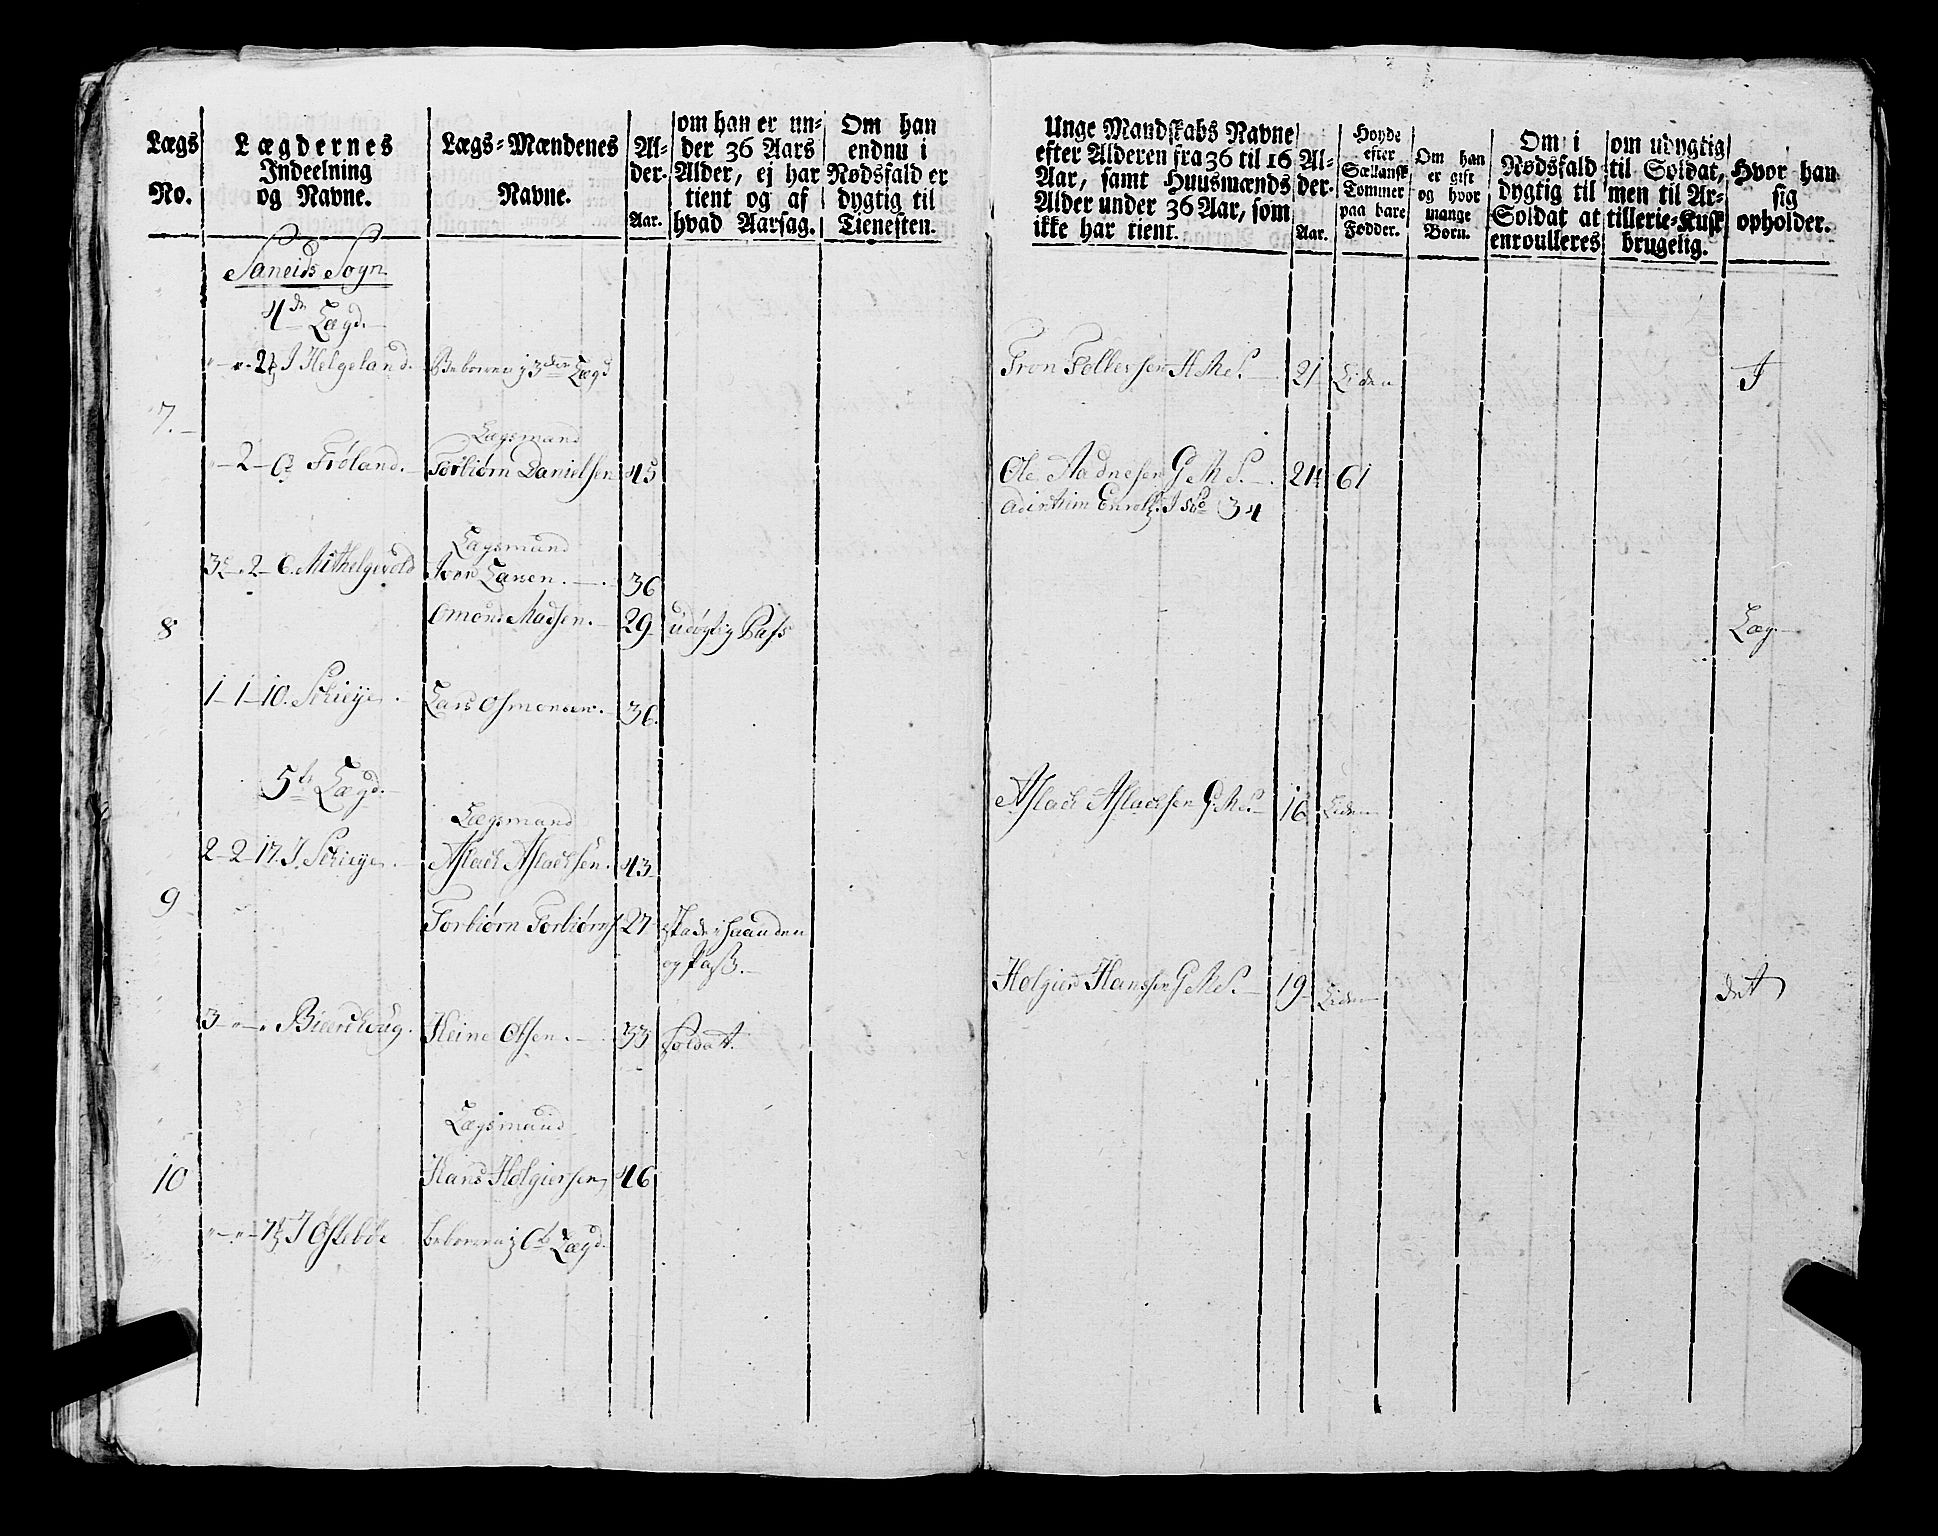 Lægs
No.
Lægdernes
Indeelning
og Navne.
Lægs-Mændenes
Navne.
Al-
der.
Aar.
om han er un-
der 36 Aars
Alder, ej har
tient og af
hvad Aarsag.
Om han
endnu i
Nødsfald er
dygtig til
Tienesten.
Unge Mandskabs Navne
efter Alderen fra 36 til 16
Aar, samt Huusmænds
Alder under 36 Aar, som
ikke har tient.
Al-
der.
Aar.
Høyde
efter
Sællansk
Tommer
paa bare
Fødder.
Om han
er gift
og hvor
mange
Børn.
Om i
Nødsfald
dygtig til
Soldat at
enroulleres
om udygtig
til Soldat,
men til Ar-
tillerie-Kusk
brugelig.
Hvor han
sig
opholder.
Saneids Sogn
4de Lægd.
I Helgeland. Beboeren i 3die Lægd
Tron Tollevsen 21 Liden
7.
Lægsmand
2 Frøland. Torbiørn Danielsen 45
Ole Aadnesen G M S. 21 61
34
Lægsmand
2 6 Mithelgevold Iver Larsen. 36
8 Omond Madsen. 29 udøgtig Pass
Læg
1 1 10. Schieye. Lars Osmonsen. 36.
5te Lægd.
Aslach Aslachsen G M S. 16 Liden
Lægsmand
2 2 17. I Schieye. Aslach Aslachsen. 43
9
Torbiørn Torbiørns 27 skade i haanden
og Pass.
Holgier Hanssen G M S. 19 Liden det
3 Bierchoug. Heine Olsen. 33 Soldat.
Lægsmand
10 Hans Holgiersen 46
I Østebøe beboeren i 6te Lægd.